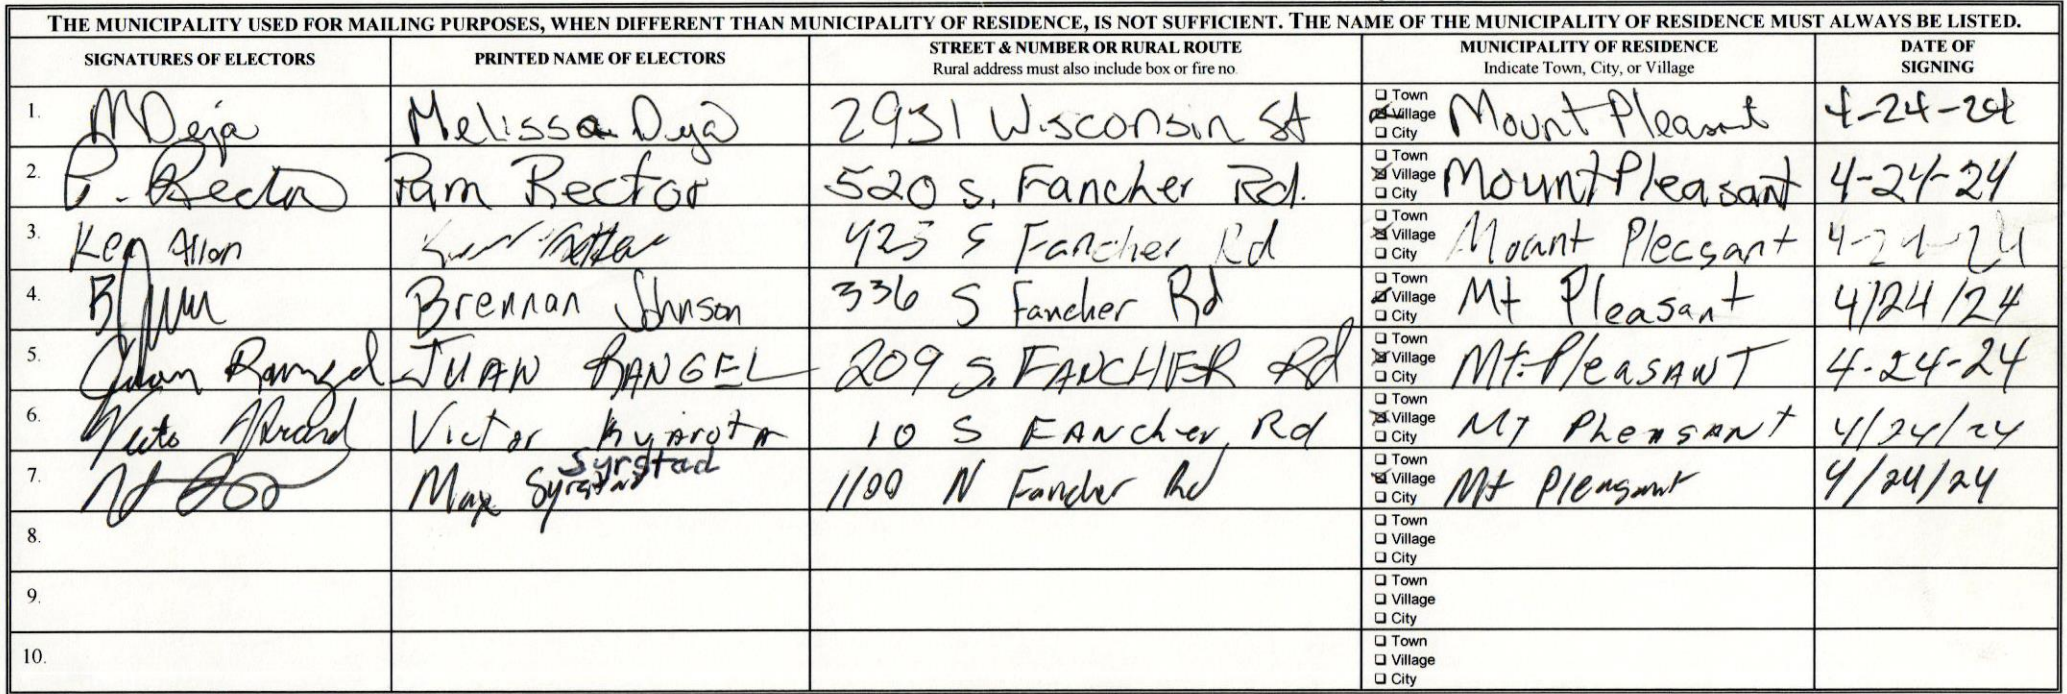 THE MUNICIPALITY USED FOR MAILING PURPOSES, WHEN DIFFERENT THAN MUNICIPALITY OF RESIDENCE, IS NOT SUFFICIENT. THE NAME OF THE MUNICIPALITY OF RESIDENCE MUST ALWAYS BE LISTED.
SIGNATURES OF ELECTORS PRINTED NAME OF ELECTORS STREET & NUMBER OR RURAL ROUTE MUNICIPALITY OF RESIDENCE DATE OF SIGNING
Rural address must also include box or fire no. Indicate Town, City, or Village
1. MDeja Melissa Deja 2931 Wisconsin St Town Village City Mount Pleasant 4-24-24
2. P. Rector Pam Rector 520 S. Fancher Rd. Town Village City Mount Pleasant 4-24-24
3. Ken Allon 425 S Fancher Rd Town Village City Mount Pleasant 4-24-24
4. Brennan Johnson 336 S Fancher Rd Town Village City Mt Pleasant 4/24/24
5. Juan Rangel JUAN RANGEL 209 S. FANCHER Rd Town Village City Mt. Pleasant 4-24-24
6. Victor 10 S FANcher Rd Town Village City Mt PheasANt 4/24/24
7. Max Syrstad Syrstad 1100 N Fancher Rd Town Village City Mt Pleasant 4/24/24
8. Town Village City
9. Town Village City
10. Town Village City